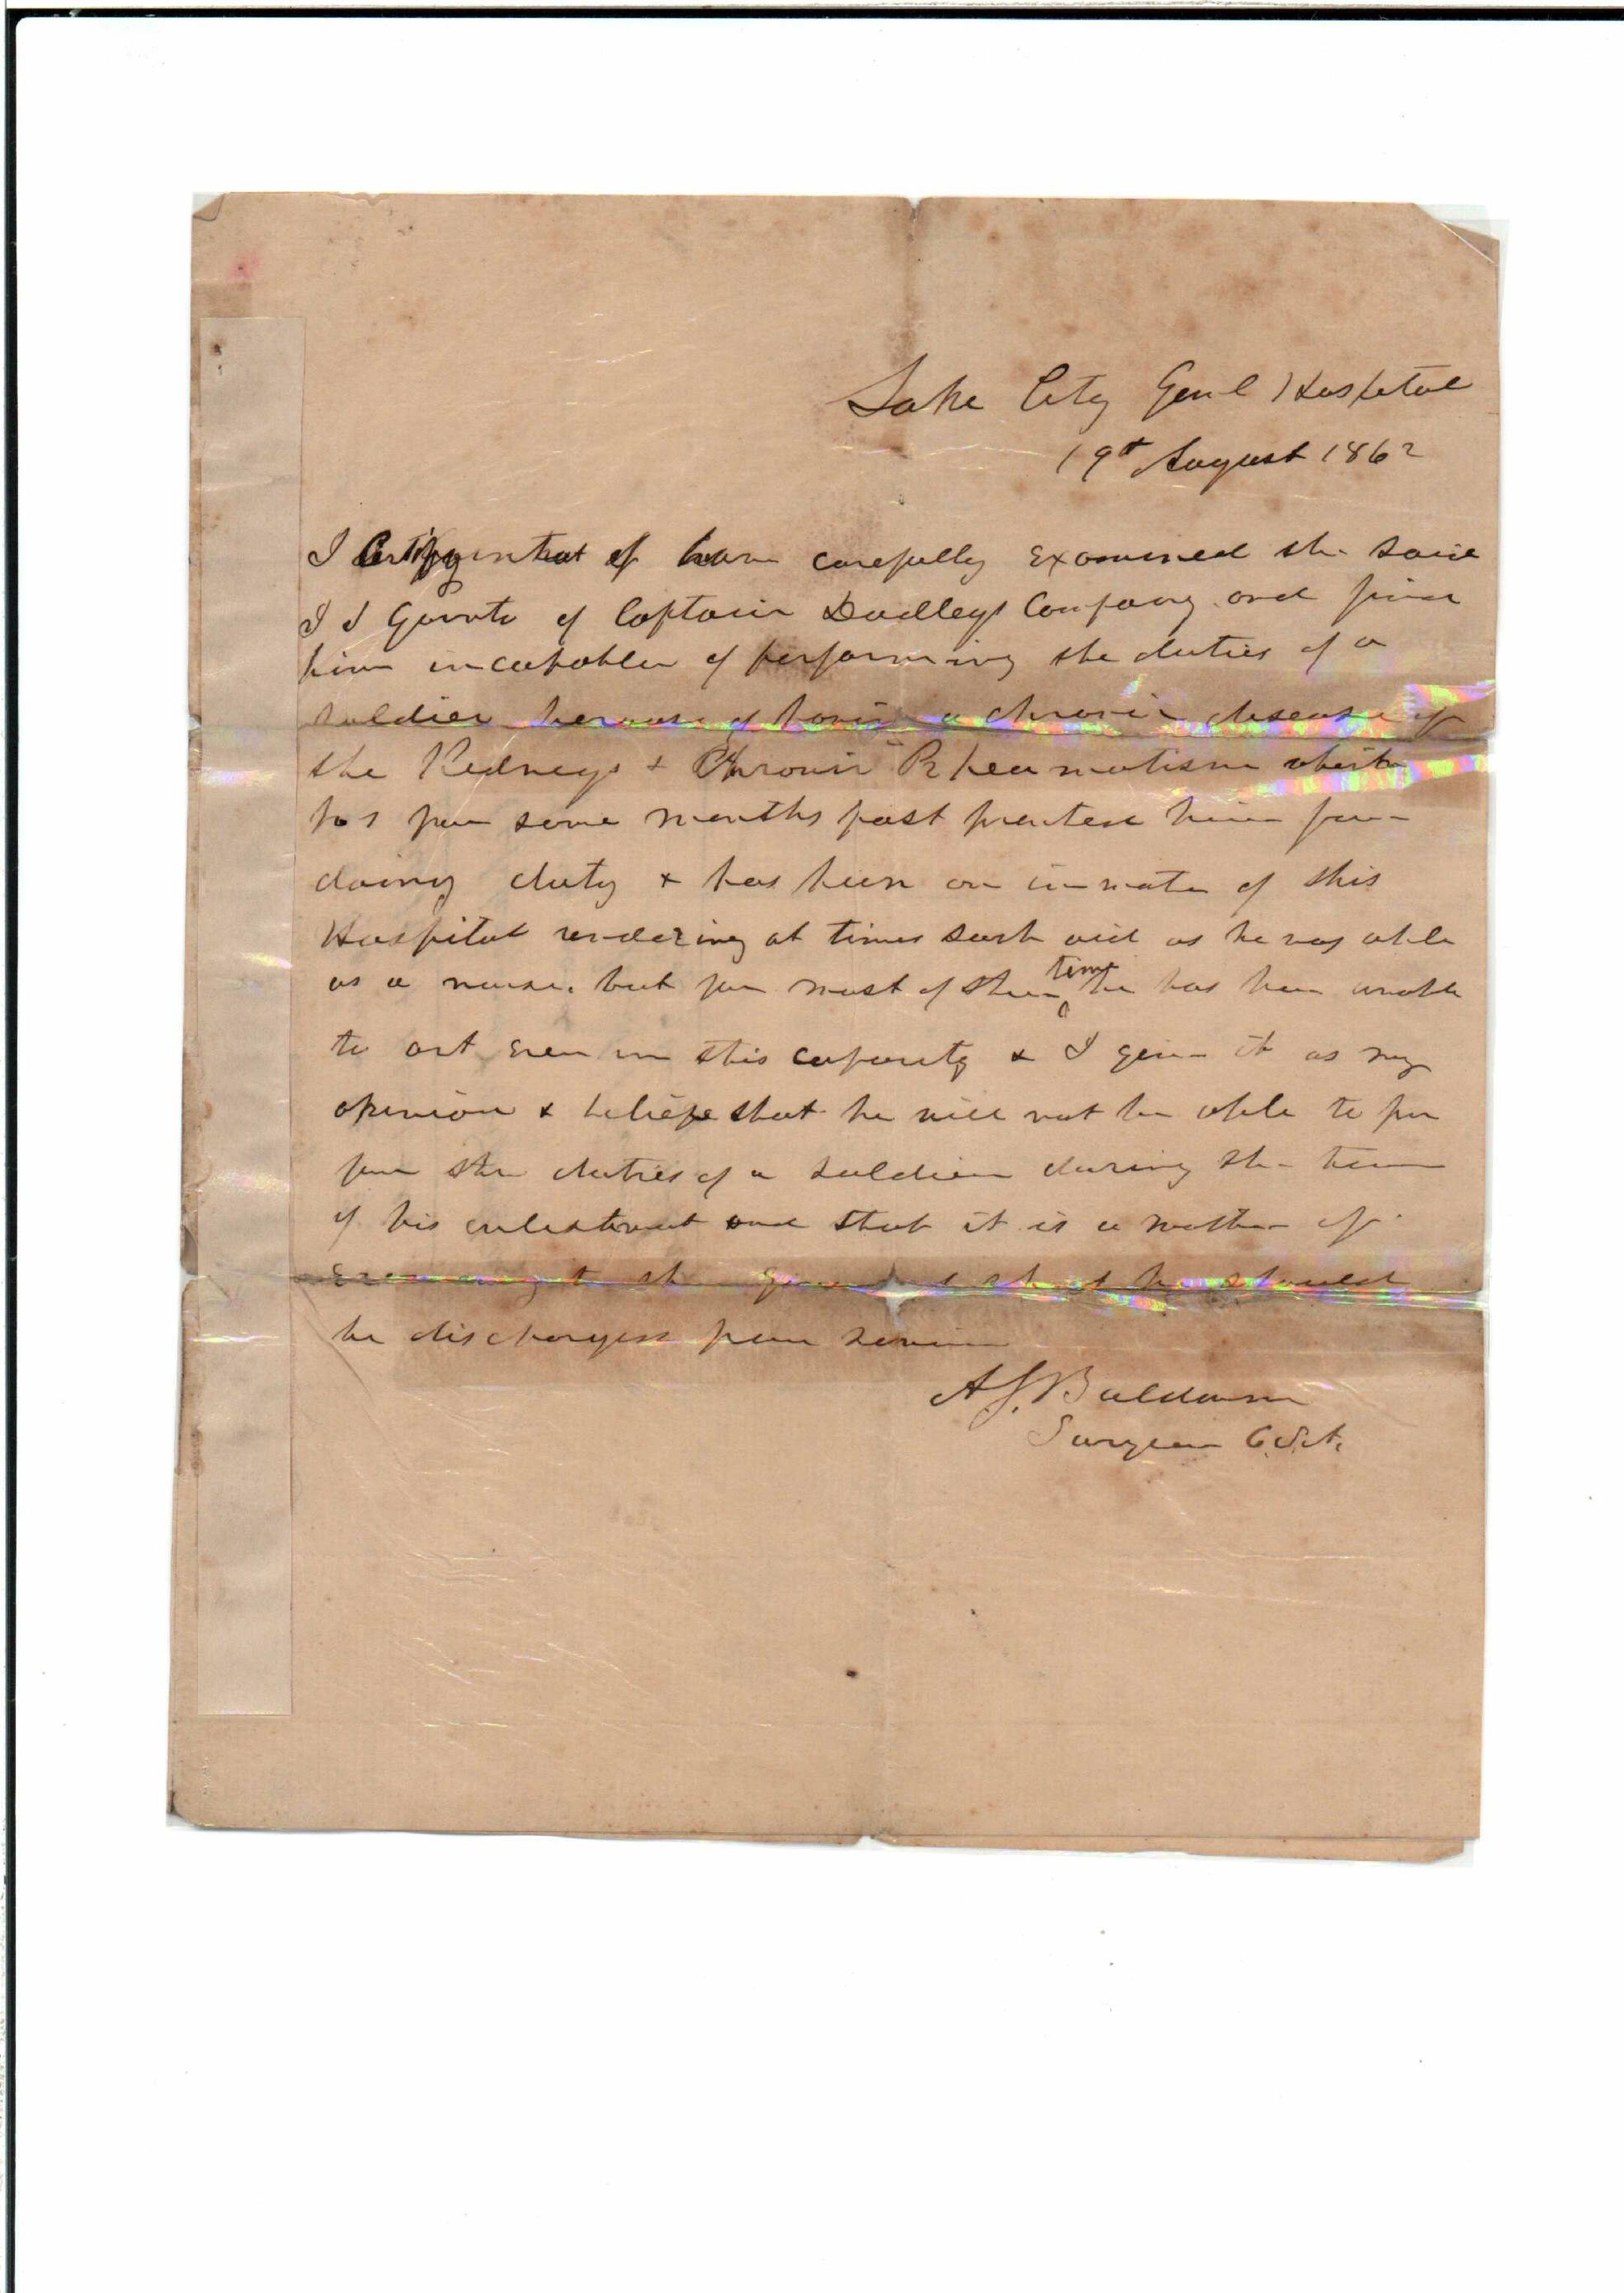 Lake City Genl Hospital
19th August 1862
I Certify that I have carefully examined the said
of Captain Dudleys Company and find
him incapable of performing the duties of a
soldier because of having a chronic disease of
the Kidneys & Chronic Rheumatism which
has for some months past prevented him from
doing duty & has been an inmate of this
Hospital rendering at times such aid as he was able
as a nurse, but for most of the time he has been unable
to act even in this capacity & I give it as my
opinion & belief that he will not be able to per
form the duties of a soldier during the term
of his enlistment and that it is a matter of
economy to the that he should
be discharged from service
A.S. Baldwin
Surgeon C.S.A.